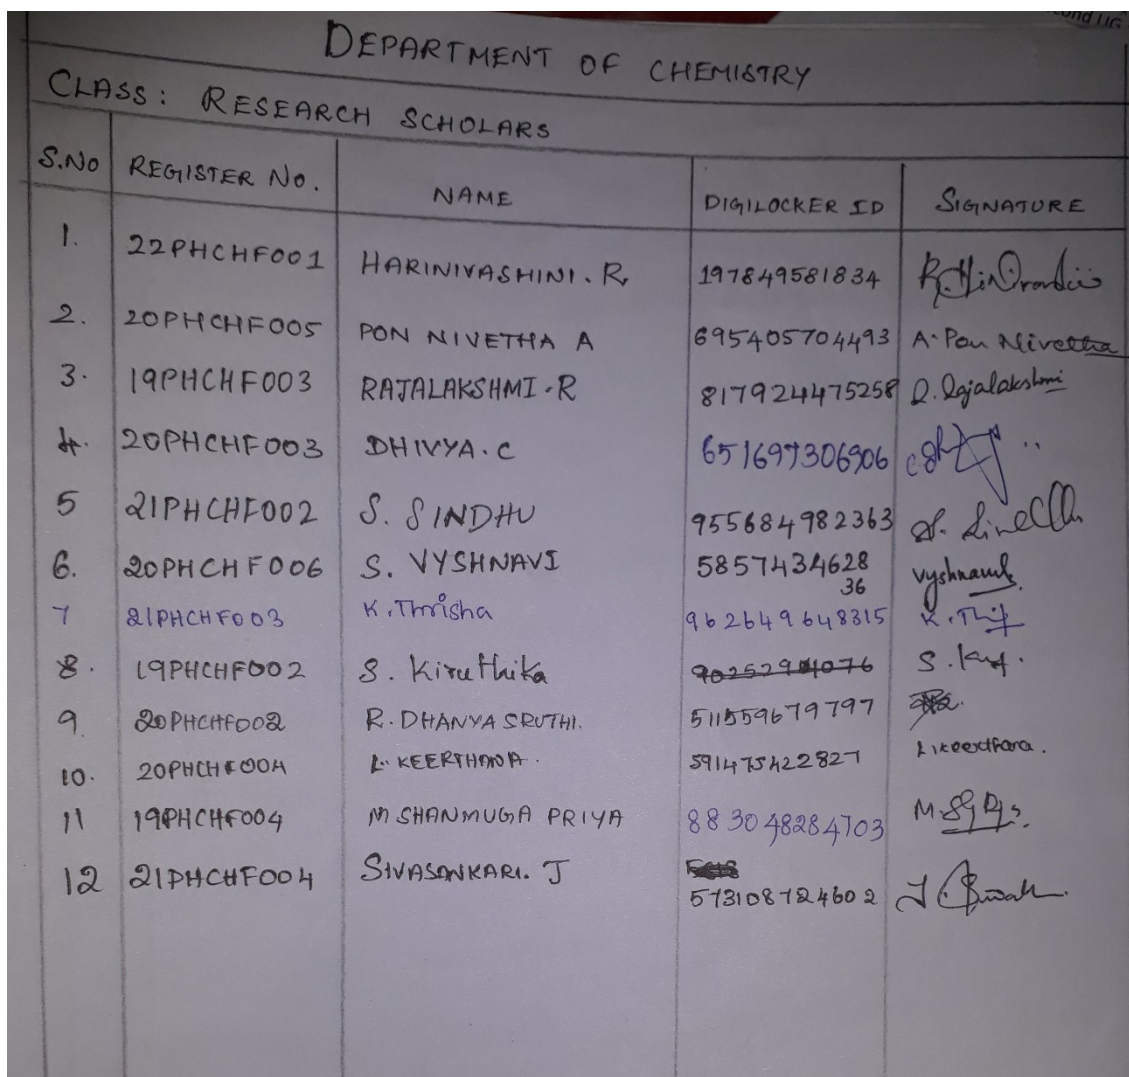 DEPARTMENT OF CHEMISTRY
CLASS: RESEARCH SCHOLARS
S.NO REGISTER NO. NAME DIGILOCKER ID SIGNATURE
1. 22PHCHF001 HARINIVASHINI.R 197849581834
2. 20PHCHF005 PON NIVETHA A 695405704493 A. Pon Nivetha
3. 19PHCHF003 RAJALAKSHMI.R 817924475258 R. Rajalakshmi
4. 20PHCHF003 DHIVYA.C 651697306906
5 21PHCHF002 S. SINDHU 955684982363
6. 20PHCHF006 S. VYSHNAVI 5857434628 Vyshnavi
36
7 21PHCHF003 K.Thrisha 962649648315
8. 19PHCHF002 S. Kiruthika
9. 20PHCHF002 R. DHANYA SRUTHI. 511559679797
10. 20PHCHF004 L. KEERTHANA. 591475422827 L.Keerthana.
11 19PHCHF004 M SHANMUGA PRIYA 883048284703
12 21PHCHF004 SIVASANKARI. J 573108724602